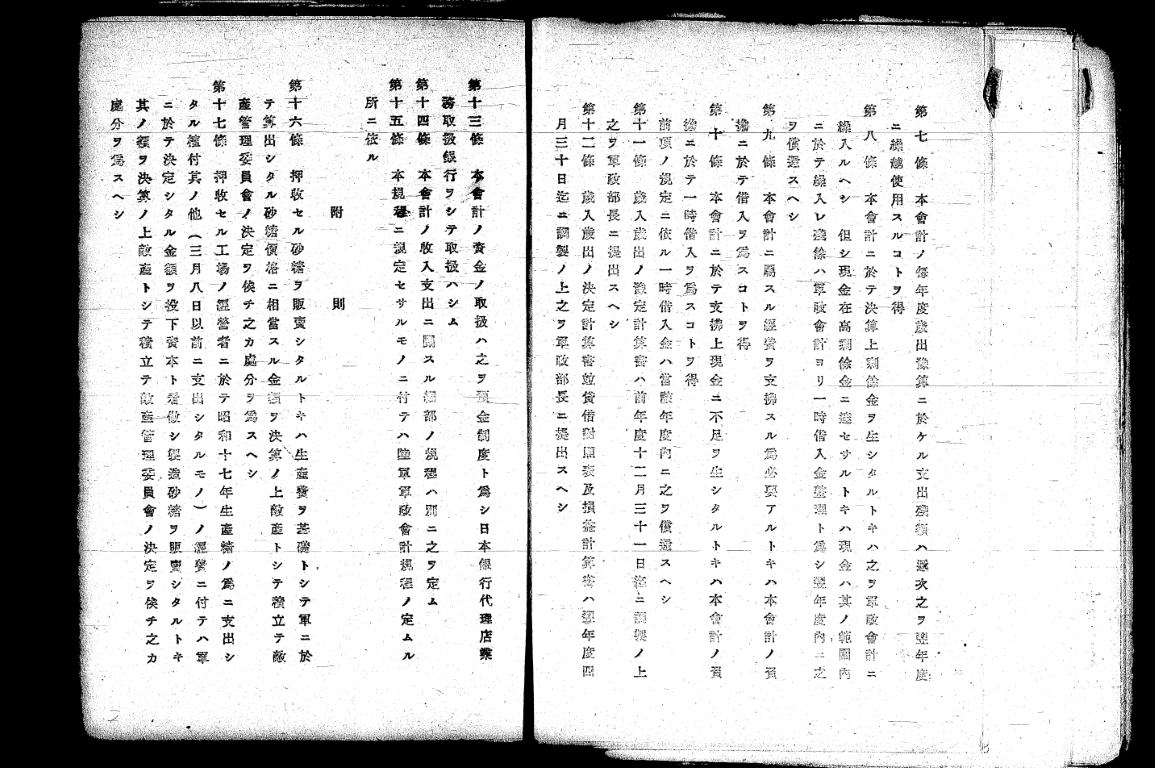 第七條　本會計ノ每年度歲出豫算ニ於ケル支出殘額ハ遞次之ヲ翌年度
ニ繰越使用スルコトヲ得
第八條　本會計ニ於テ決算上剩餘金ヲ生シタルトキハ之ヲ軍政會計ニ
繰入ルヘシ　但シ現金在高剩餘金ニ達セサルトキハ現金ハ其ノ範圍內
ニ於テ繰入レ殘餘ハ軍政會計ヨリ一時借入金整理ト爲シ翌年度內ニ之
ヲ償還スヘシ
第九條　本會計ニ屬スル經費ヲ支拂スル爲必要アルトキハ本會計ノ負
擔ニ於テ借入ヲ爲スコトヲ得
第十條　本會計ニ於テ支拂上現金ニ不足ヲ生シタルトキハ本會計ノ負
擔ニ於テ一時借入ヲ爲スコトヲ得
前項ノ規定ニ依ル一時借入金ハ當該年度內ニ之ヲ償還スヘシ
第十一條　歲入歲出ノ豫定計算書ハ前年度十二月三十一日迄ニ調製ノ上
之ヲ軍政部長ニ提出スヘシ
第十二條　歲入歲出ノ決定計算書竝貸借對照表及損益計算書ハ翌年度四
月三十日迄ニ調製ノ上之ヲ軍政部長ニ提出スヘシ
第十三條　本會計ノ資金ノ取扱ハ之ヲ預金制度ト爲シ日本銀行代理店業
務取扱銀行ヲシテ取扱ハシム
第十四條　本會計ノ收入支出ニ關スル細部ノ規程ハ別ニ之ヲ定ム
第十五條　本規程ニ規定セサルモノニ付テハ陸軍軍政會計規程ノ定ムル
所ニ依ル
附則
第十六條　押收セル砂糖ヲ販賣シタルトキハ生產費ヲ基礎トシテ軍ニ於
テ算出シタル砂糖價格ニ相當スル金額ヲ決算ノ上敵產トシテ積立テ敵
產管理委員會ノ決定ヲ俟チ之カ處分ヲ爲スヘシ
第十七條　押收セル工場ノ經營者ニ於テ昭和十七年生產糖ノ爲ニ支出シ
タル種付其ノ他（三月八日以前ニ支出シタルモノ）ノ經費ニ付テハ軍
ニ於テ決定シタル金額ヲ投下資本ト看做シ製造砂糖ヲ販賣シタルトキ
其ノ額ヲ決算ノ上敵產トシテ積立テ敵產管理委員會ノ決定ヲ俟チ之カ
處分ヲ爲スヘシ